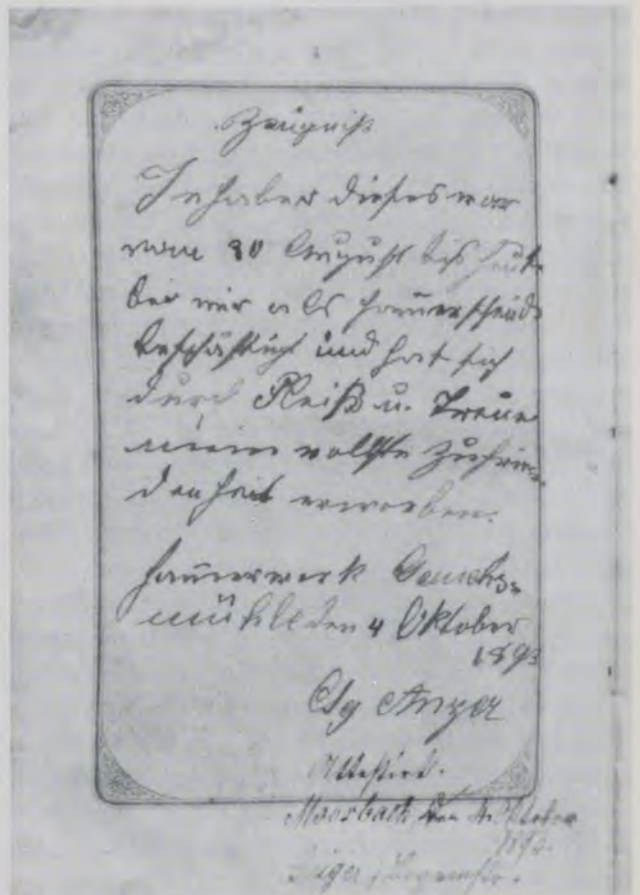 Zeugniß
Inhaber dieses war
vom 30 August bis heute
bei mir als Hammerschmied
beschäftigt und hat sich
durch Fleiß u. Treue
meine vollste Zufrie-
denheit erworben.
Hammerwerk
mühle den 4 Oktober
1893
Gg Anzer
Attestirt.
Moosbach, den 4. Oktober
1893.